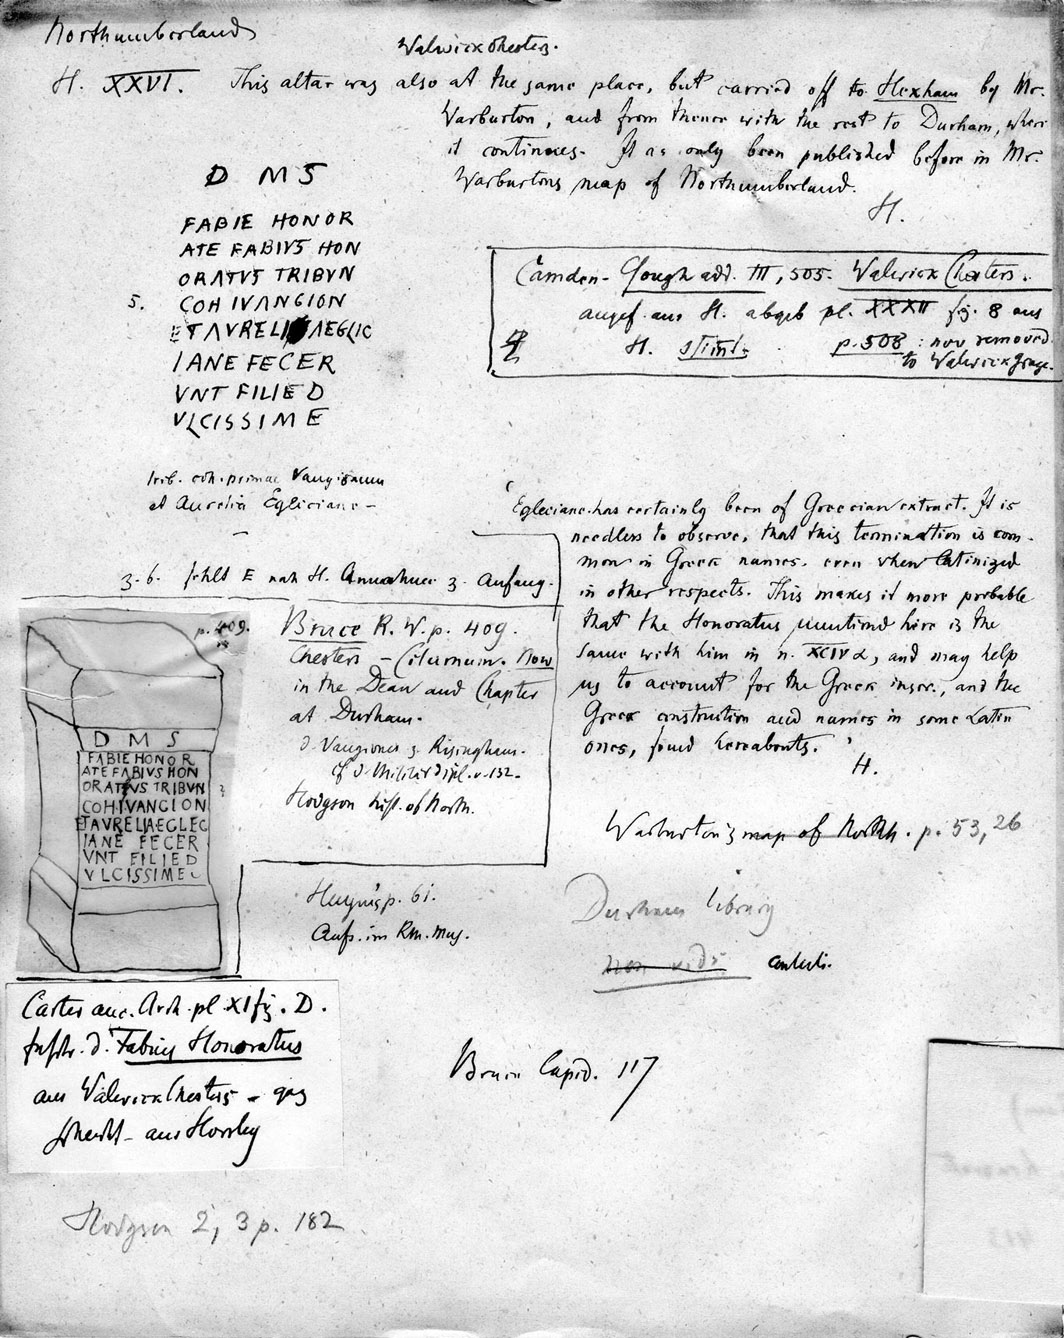 Northumberland
Walwick Chesters.
H. XXVI. This altar was also at the same place, but carried off to Hexham by Mr.
Warburton, and from thence with the rest to Durham, where
it continues. It as only been published before in Mr.
Warburtons map of Northumberland.
H.
D M S
FABIE HONOR
ATE FABIVS HON
ORATVS TRIBVN
5. COH IVANGION
ETAVRELI AEGLIC
IANE FECER
VNT FILIE D
VLCISSIME
Camden-Gough add. III, 505. Walwick Chesters.
angef. aus H. abgeb pl. XXXII fig. 8 aus
H. stimt. p. 508: now removed
to Walwick grange.
trib. coh. primae Vangionum
et Aurelia Egliciane -
'Egleciane has certainly been of Greecian extract. It is
needless to observe, that this termination is com-
mon in Greek names, even when latinized
in other respects. This makes it more probable
that the Honoratus mentiond hire is the
same with him in n. XCIV α, and may help
us to account for the Greek inscr., and the
Greek construction and names in some Latin
ones, found hereabouts.'
H.
3. 6. fehlt E nach H. 3. Anfang.
p. 409.
D M S
FABIE HONOR
ATE FABIVS HON
ORATVS TRIBVN
COH IVANGION
ETAVRELIAEGLEC
IANE FECER
VNT FILIE D
VLCISSIME
Bruce R. W. p. 409.
Chesters - Cilurnum. Now
in the Dean and Chapter
at Durham.
d. Vangiones z. Risingham.
cf. d. Militärdipl. v. 132.
Hodgson hist. of North.
Warburton's map of North. p. 53, 26
p. 61.
Aufs. im Rm. Mus.
Durham library
non vidi contuli.
Carter anc. Arch. pl. XI fig. D.
Inschr. d. Fabius Honoratus
aus Walwick Chesters -
- aus Horsley
Bruce Lapid. 117
Hodgson 2, 3 p. 182